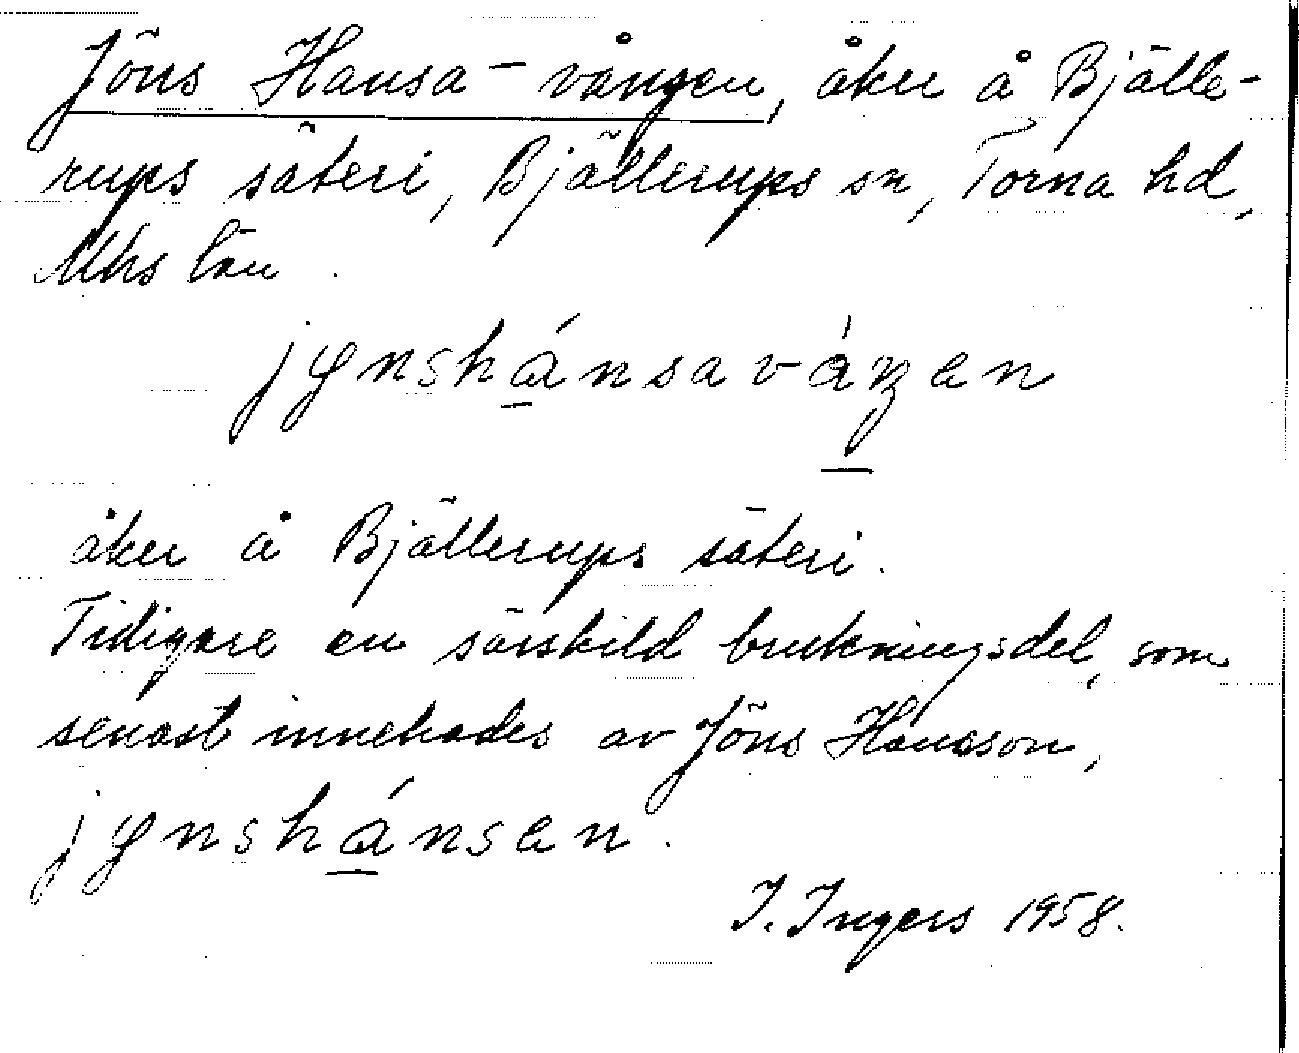 Jöns Hansa-vången, åker å Bjälle-
rups säteri, Bjällerups sn, Torna hd,
Mhs län.
jynshánsavåŋen
åker å Bjällerups säteri.
Tidigare en särskild brukningsdel, som
senast innehades av Jöns Hansson,
jynshánsen.
I. Ingers 1958.